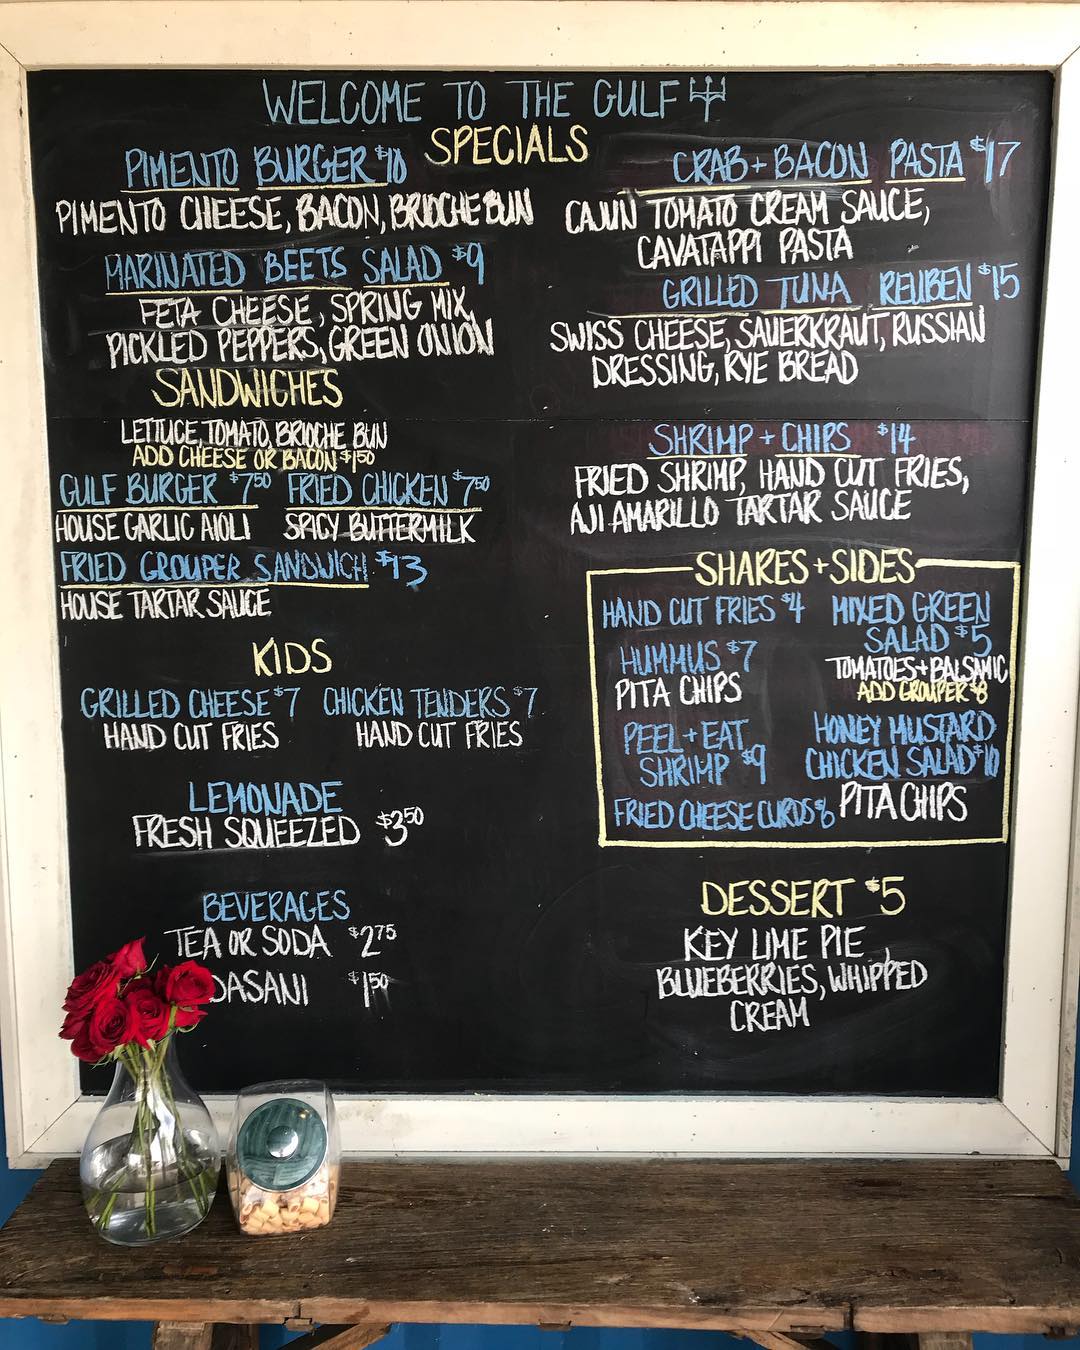 WELCOME TO THE GULF
SPECIALS
PIMENTO BURGER $10
PIMENTO CHEESE, BACON, BRIOCHE BUN
MARINATED BEETS SALAD $9
FETA CHEESE, SPRING MIX,
PICKLED PEPPERS, GREEN ONION
CRAB + BACON PASTA $17
CAJUN TOMATO CREAM SAUCE,
CAVATAPPI PASTA
GRILLED TUNA REUBEN $15
SWISS CHEESE, SAUERKRAUT, RUSSIAN
DRESSING, RYE BREAD
SHRIMP + CHIPS $14
FRIED SHRIMP, HAND CUT FRIES,
AJI AMARILLO TARTAR SAUCE
SANDWICHES
LETTUCE, TOMATO, BRIOCHE BUN
ADD CHEESE OR BACON $1.50
GULF BURGER $7.50 FRIED CHICKEN $7.50
HOUSE GARLIC AIOLI SPICY BUTTERMILK
FRIED GROUPER SANDWICH $13
HOUSE TARTAR SAUCE
KIDS
GRILLED CHEESE $7 CHICKEN TENDERS $7
HAND CUT FRIES HAND CUT FRIES
LEMONADE
FRESH SQUEEZED $3.50
BEVERAGES
TEA OR SODA $2.75
DASANI $1.50
SHARES + SIDES
HAND CUT FRIES $4
HUMMUS $7
PITA CHIPS
PEEL + EAT
SHRIMP $9
FRIED CHEESE CURDS $6
MIXED GREEN
SALAD $5
TOMATOES + BALSAMIC
ADD GROUPER $8
HONEY MUSTARD
CHICKEN SALAD $10
PITA CHIPS
DESSERT $5
KEY LIME PIE
BLUEBERRIES, WHIPPED
CREAM